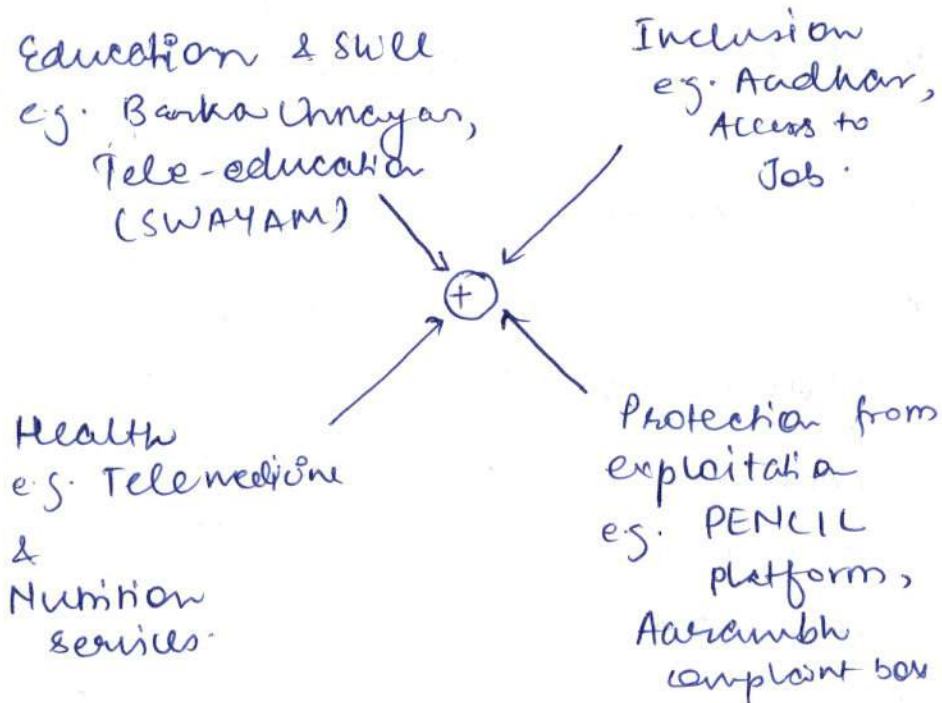 Education & Skill
e.g. Banka Unnayan,
Tele-education
(SWAYAM)
Inclusion
e.g. Aadhar,
Access to
Job.
+
Health
e.g. Telemedicine
&
Nutrition
services.
Protection from
exploitation
e.g. PENCIL
platform,
Aarambh
complaint box